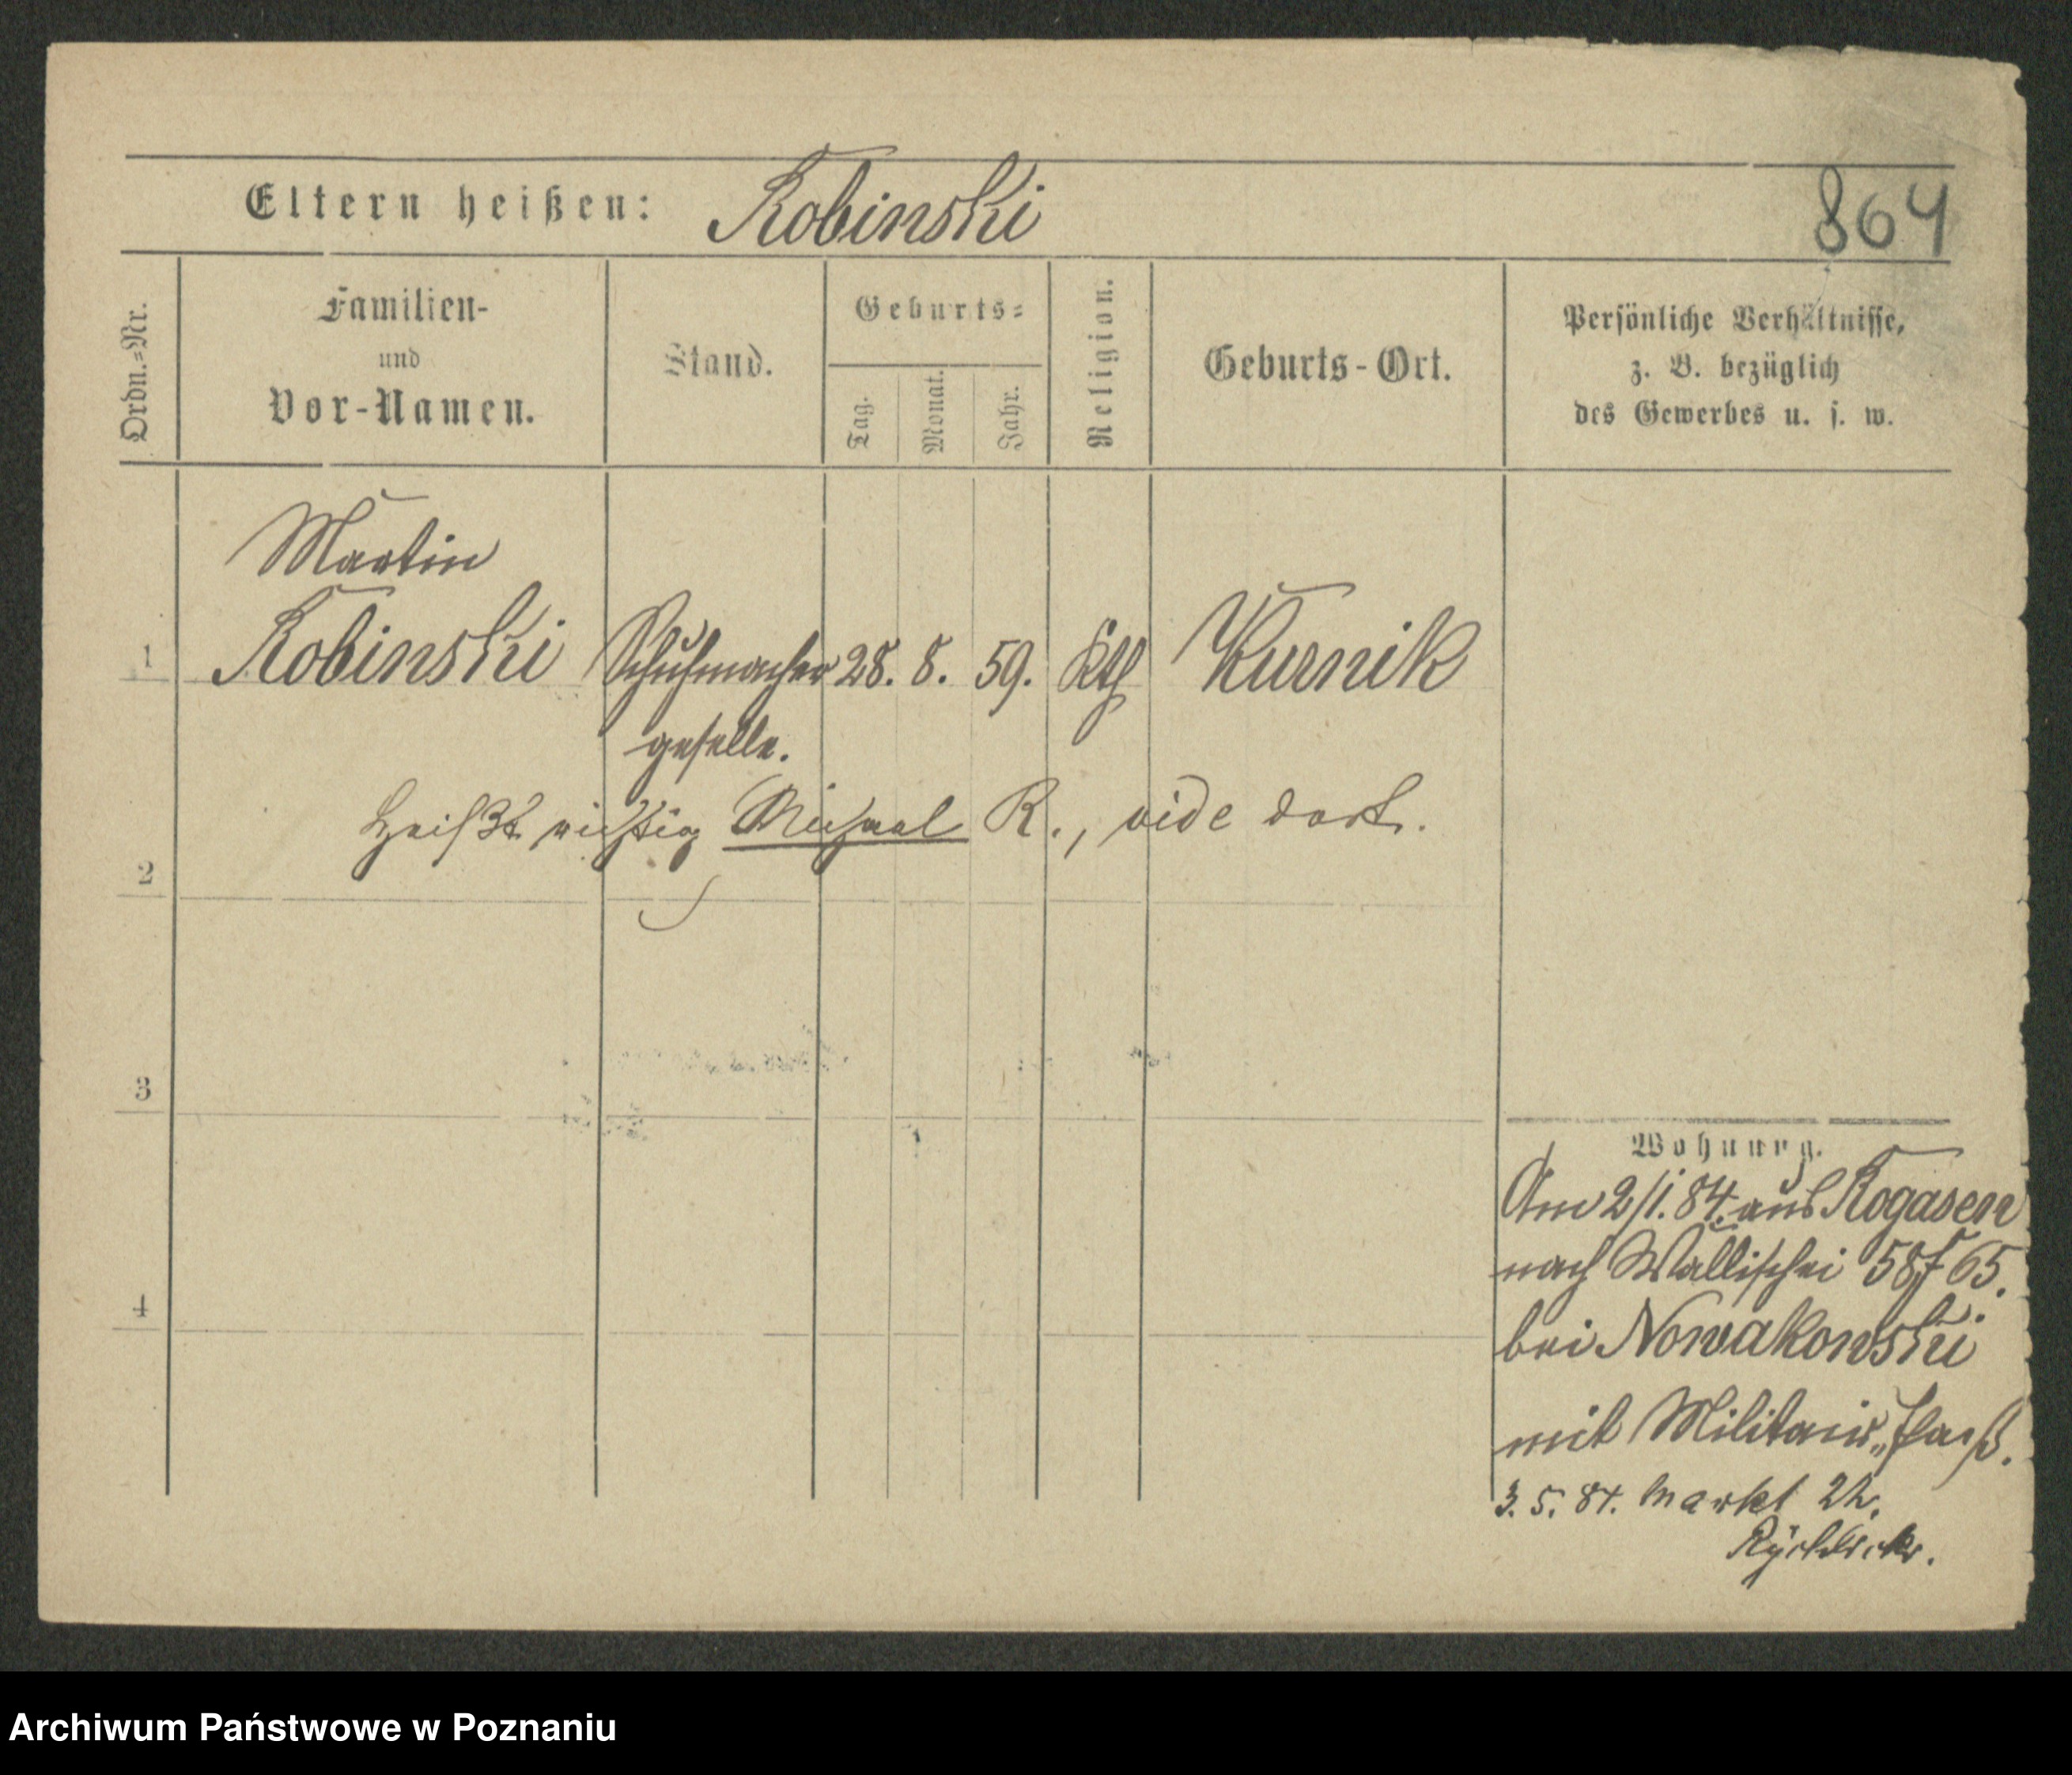 Eltern heißen: Robinski
864
Ordn.=Nr.
Familien-
und
Vor-Namen.
Stand.
Geburts=
Tag.
Monat.
Jahr.
Religion.
Geburts-Ort.
Persönliche Verhältnisse,
z. B. bezüglich
des Gewerbes u. s. w.
Martin
1 Robinski Schuhmacher 28. 8. 59. Kth Kurnik
geselle.
Heißt richtig Michael R., vide dort.
2
3
4
Wohnung.
Am 2/1. 84. aus Rogasen
nach Wallischei 58/65.
bei Nowakowski
mit Militair„Paß.
3. 5. 84. Markt
Archiwum Państwowe w Poznaniu